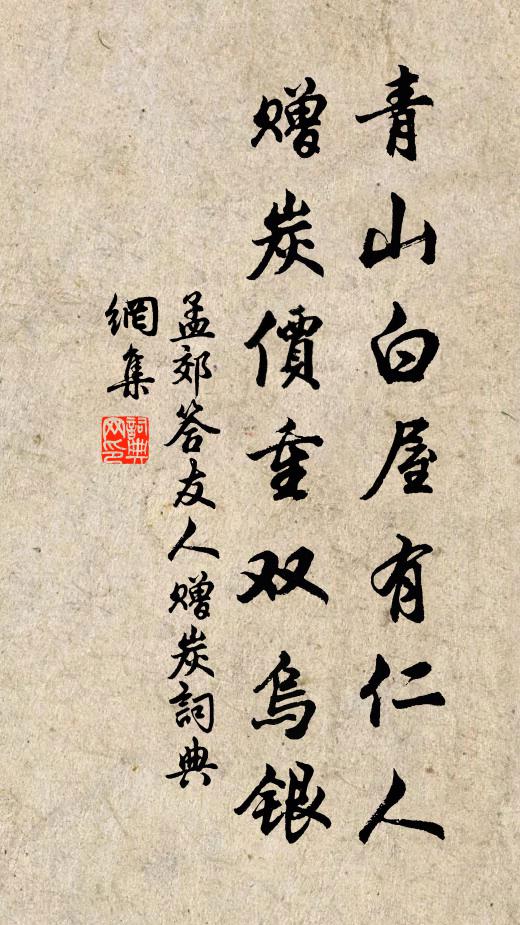 青山白屋有仁人
赠炭價重双烏銀
孟郊答友人赠炭詞典
網集
詞典
网印